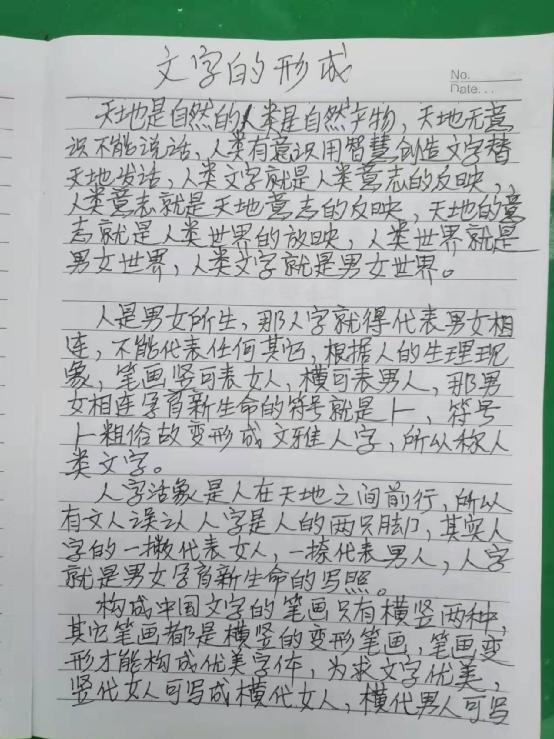 文字的形成
No.
Date...
天地是自然的人类是自然产物，天地无意
识不能说话，人类有意识用智慧创造文字替
天地发话，人类文字就是人类意志的反映，，
人类意志就是天地意志的反映，天地的意
志就是人类世界的放映，人类世界就是
男女世界，人类文字就是男女世界。
人是男女所生，那人字就得代表男女相
连，不能代表任何其它，根据人的生理现
象，笔画竖可表女人，横可表男人，那男
女相连孕育新生命的符号就是⺊，符号
⺊粗俗故变形成文雅人字，所以称人
类文字。
人字活象是人在天地之间前行，所以
有文人误认人字是人的两只脚，其实人
字的一撇代表女人，一捺代表男人，人字
就是男女孕育新生命的写照。
构成中国文字的笔画只有横竖两种，
其它笔画都是横竖的变形笔画，笔画变
形才能构成优美字体，为求文字优美，
竖代女人可写成横代女人，横代男人可写